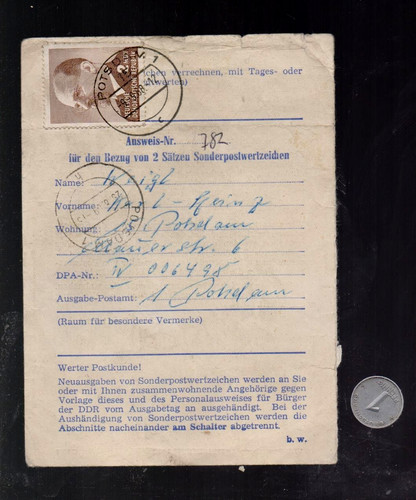 POTSDAM 1
2
DEUTSCHE
zeichen verrechnen, mit Tages- oder
werten)
Ausweis-Nr. 782
für den Bezug von 2 Sätzen Sonderpostwertzeichen
Name: Weigt
Vorname: Karl-Heinz
Wohnung: Potsdam
str. 6
DPA-Nr.: IV 006495
Ausgabe-Postamt: 1 Potsdam
(Raum für besondere Vermerke)
Werter Postkunde!
Neuausgaben von Sonderpostwertzeichen werden an Sie
oder mit Ihnen zusammenwohnende Angehörige gegen
Vorlage dieses und des Personalausweises für Bürger
der DDR vom Ausgabetag an ausgehändigt. Bei der
Aushändigung von Sonderpostwertzeichen werden die
Abschnitte nacheinander am Schalter abgetrennt.
b. w.
1